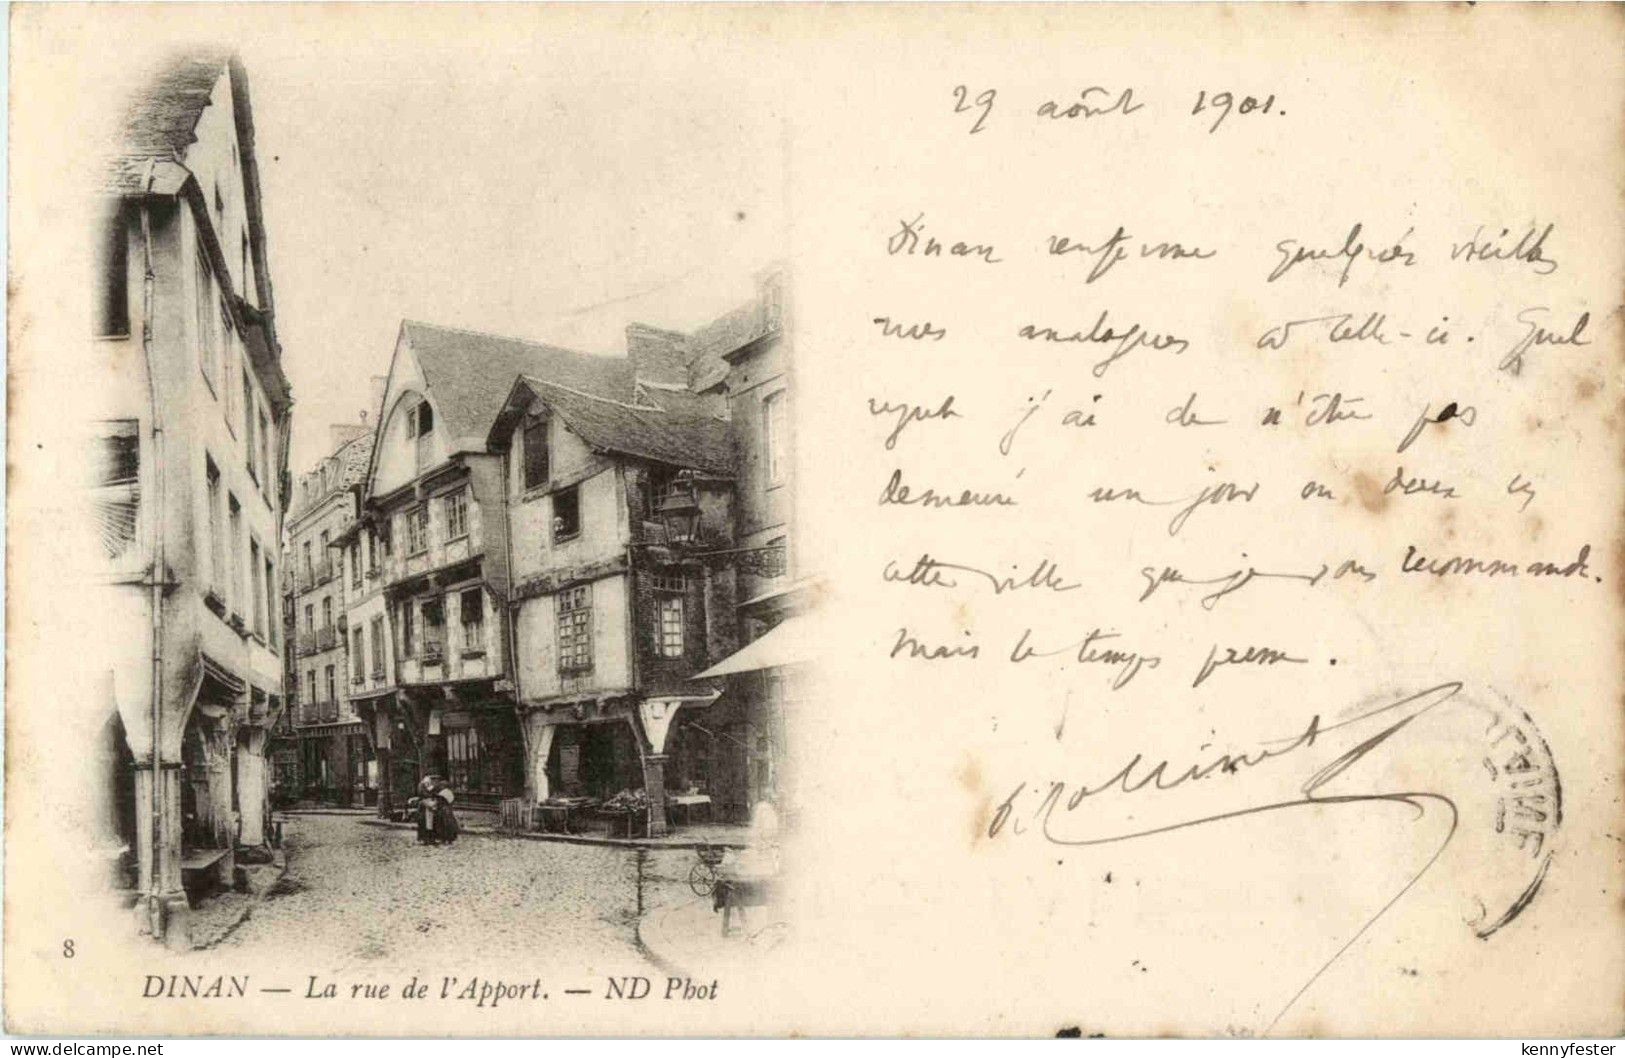 29 août 1901.
Dinan renferme quelques vieilles
rues analogues à celle-ci. Quel
regret j'ai de n'être pas
demeuré un jour ou deux en
cette ville que je vous recommande.
Mais le temps presse.
8
DINAN — La rue de l'Apport. — ND Phot
delcampe.net
kennyfester